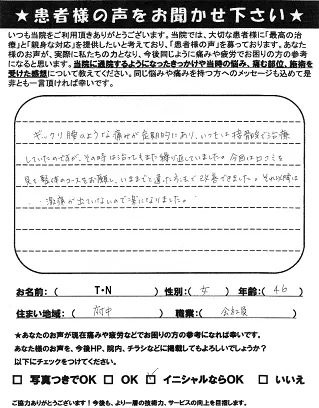 ★患者様の声をお聞かせ下さい★
いつも当院をご利用頂きありがとうございます。当院では、大切な患者様に「最高の治
療」と「親身な対応」を提供したいと考えており、「患者様の声」を募っております。あなた
様のお声が、実際に私たちの力となり、今後同じように痛みや疲労でお困りの方の参考
になると思います。当院に通院するようになったきっかけや当時の悩み、痛む部位、施術を
受けた感想について教えてください。同じ悩みや痛みを持つ方へのメッセージも込めて是
非とも一言頂ければ幸いです。
ギックリ腰のような痛みが定期的にあり、いつもは接骨院で治療
していたのですが、その時は治ってもまた繰り返していました。今回は口コミを
見て整体のコースをお願いし、いままでと違った方法で改善できました。それ以降は
激痛が出ていないので楽になりました。
お名前:( T・N ) 性別:( 女 ) 年齢:( 46 )
住まい地域:( 府中 ) 職業:( 会社員 )
★あなたのお声が現在痛みや疲労などでお困りの方の参考になれば幸いです。
あなた様のお声を、今後HP、院内、チラシなどに掲載してもよろしいでしょうか?
以下にチェックをつけてください。
□ 写真つきでOK □ OK ☑ イニシャルならOK □ いいえ
ご協力ありがとうございます!今後も、より一層の技術力、サービスの向上を目指します。